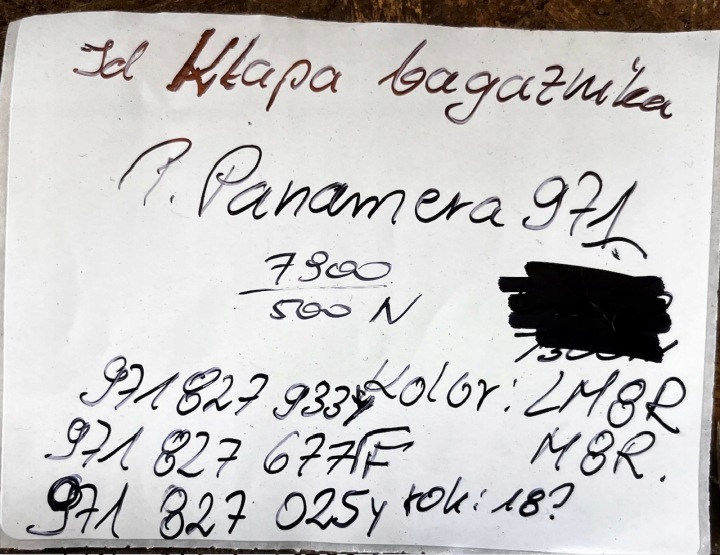 Id Kłapa bagażnika
P. Panamera 971
7900
500 N
971 827 933y Kolor: LM8R
971 827 677F M8R.
971 827 025y rok: 18?